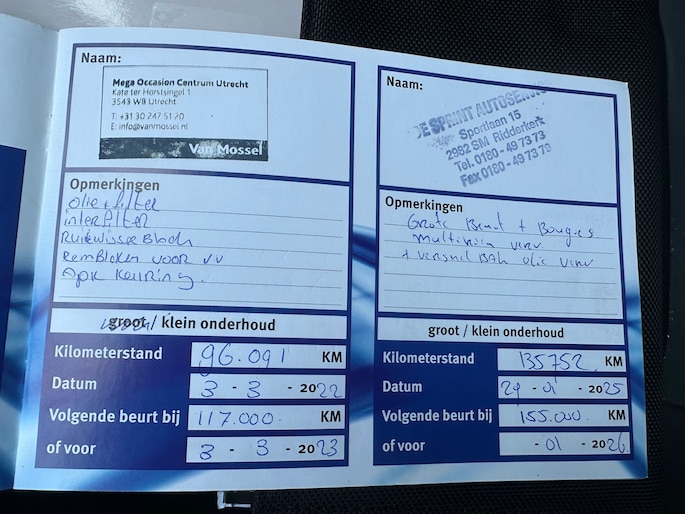 Naam:
Mega Occasion Centrum Utrecht
Kate ter Horstsingel 1
3543 WB Utrecht
T: +31 30 247 51 20
E: info@vanmossel.nl
Van Mossel
Opmerkingen
olie + filter
interfilter
Ruitewisser Bladen
RemBlokken voor v.v
Apk Keuring.
groot / klein onderhoud
Kilometerstand 96.091 KM
Datum 3 - 3 - 2022
Volgende beurt bij 117.000 KM
of voor 3 - 3 - 2023
Naam:
DE SPRINT AUTOSERVICE
Sportlaan 15
2982 SM Ridderkerk
Tel. 0180 - 49 73 73
Fax 0180 - 49 73 79
Opmerkingen
Grote Beurt + Bougies
multiriem verv
+ versnel BAK olie verv
groot / klein onderhoud
Kilometerstand 135752 KM
Datum 29 - 01 - 2025
Volgende beurt bij 155.000 KM
of voor - 01 - 2026